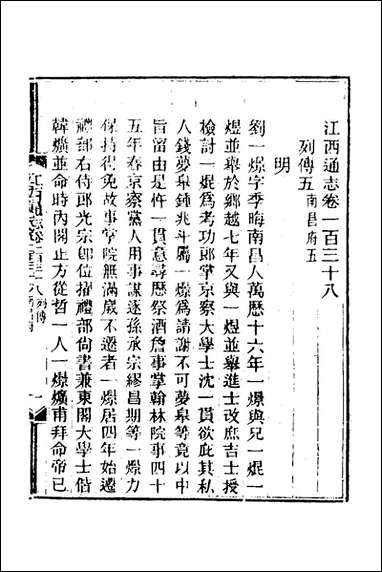 江西通志卷一百三十八
列傳五南昌府五
明
劉一燝字季晦南昌人萬歷十六年一燝與兄一焜一
煜並舉於鄉越七年又與一煜並舉進士改庶吉士授
檢討一焜爲考功郎掌京察大學士沈一貫欲庇其私
人錢夢臯鍾兆斗屬一燝爲請謝不可夢臯等竟以中
旨留由是忤一貫意尋歷祭酒詹事掌翰林院事四十
五年春京察黨人用事謀逐孫承宗繆昌期等一燝力
保持得免故事掌院無滿歲不遷者一燝居四年始遷
禮部右侍郎光宗卽位擢禮部尚書兼東閣大學士偕
韓爌並命時內閣止方從哲一人一燝爌甫拜命帝已
江西通志卷一百三十八 列傳 南昌府